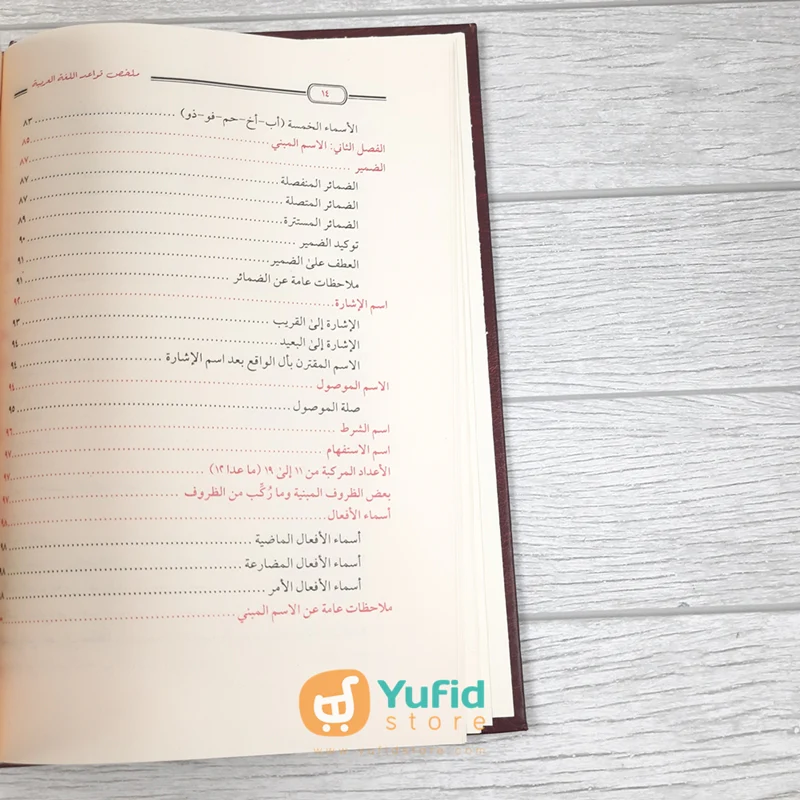 ١٤
ملخص قواعد اللغة العربية
الأسماء الخمسة (أب-أخ-حم-فو-ذو) ٨٣
الفصل الثاني: الاسم المبني ٨٥
الضمير ٨٧
الضمائر المنفصلة ٨٧
الضمائر المتصلة ٨٧
الضمائر المستترة ٨٩
توكيد الضمير ٩٠
العطف على الضمير ٩١
ملاحظات عامة عن الضمائر ٩١
اسم الإشارة ٩٢
الإشارة إلى القريب ٩٣
الإشارة إلى البعيد ٩٤
الاسم المقترن بأل الواقع بعد اسم الإشارة ٩٤
الاسم الموصول ٩٤
صلة الموصول ٩٥
اسم الشرط ٩٦
اسم الاستفهام ٩٧
الأعداد المركبة من ١١ إلى ١٩ (ما عدا ١٢) ٩٧
بعض الظروف المبنية وما رُكِّب من الظروف ٩٧
أسماء الأفعال ٩٨
أسماء الأفعال الماضية ٩٨
أسماء الأفعال المضارعة ٩٨
أسماء الأفعال الأمر
ملاحظات عامة عن الاسم المبني
Yufid
store